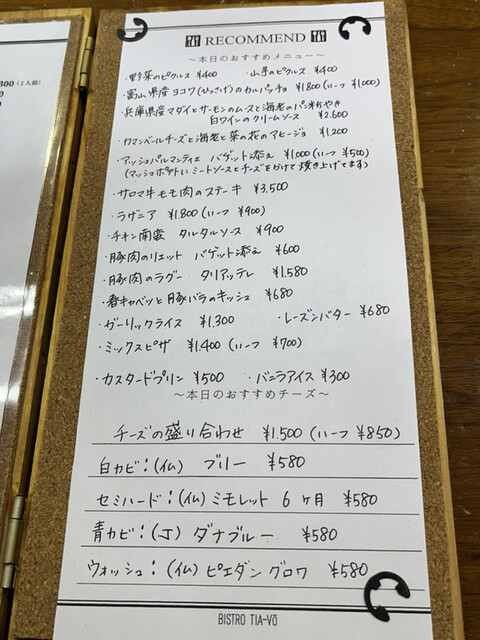 300 (1人前)
RECOMMEND
～本日のおすすめメニュー～
・野菜のピクルス ¥400 ・山芋のピクルス ¥400
・富山県産 ヨコワ(ひっさげ)のカルパッチョ ¥1.800 (ハーフ ¥1.000)
・兵庫県産マダイとサーモンのムースと海老のパン粉やき
白ワインのクリームソース ¥2.600
・カマンベールチーズと海老と菜の花のアヒージョ ¥1.200
・アッシュパルマンティエ バゲット添え ¥1.000 (ハーフ ¥500)
(マッシュポテトに ミートソースとチーズをかけて焼き上げてます)
・サロマ牛モモ肉のステーキ ¥3.500
・ラザニア ¥1.800 (ハーフ ¥900)
・チキン南蛮 タルタルソース ¥900
・豚肉のリエット バゲット添え ¥600
・豚肉のラグー タリアッテレ ¥1.580
・春キャベツと豚バラのキッシュ ¥680
・ガーリックライス ¥1.300 ・レーズンバター ¥680
・ミックスピザ ¥1.400 (ハーフ ¥700)
・カスタードプリン ¥500 ・バニラアイス ¥300
～本日のおすすめチーズ～
チーズの盛り合わせ ¥1.500 (ハーフ ¥850)
白カビ：(仏) ブリー ¥580
セミハード：(仏) ミモレット 6ヶ月 ¥580
青カビ：(J) ダナブルー ¥580
ウォッシュ：(仏) ピエダングロワ ¥580
BISTRO TIA-VŌ